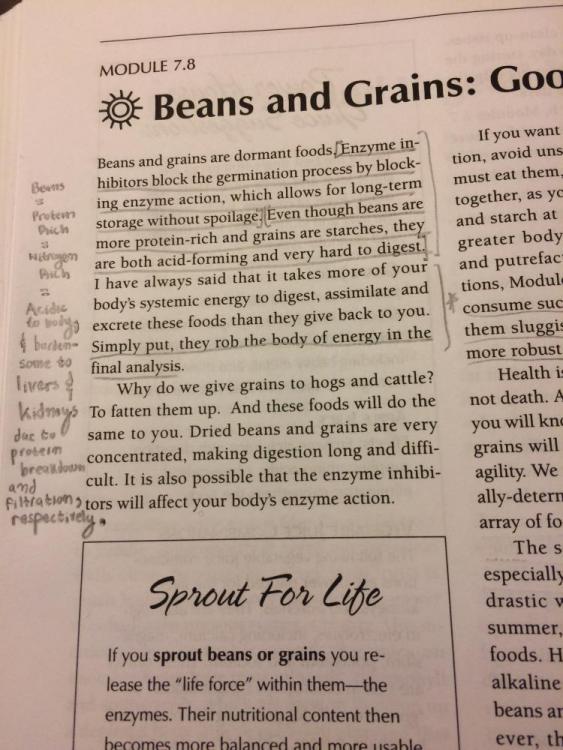 MODULE 7.8
Beans and Grains: Goo
Beans and grains are dormant foods. Enzyme in-
hibitors block the germination process by block-
ing enzyme action, which allows for long-term
storage without spoilage. Even though beans are
more protein-rich and grains are starches, they
are both acid-forming and very hard to digest.
I have always said that it takes more of your
body's systemic energy to digest, assimilate and
excrete these foods than they give back to you.
Simply put, they rob the body of energy in the
final analysis.
Why do we give grains to hogs and cattle?
To fatten them up. And these foods will do the
same to you. Dried beans and grains are very
concentrated, making digestion long and diffi-
cult. It is also possible that the enzyme inhibi-
tors will affect your body's enzyme action.
Beans
=
Protein
Rich
=
Nitrogen
Rich
=
Acidic
to body
& burden-
some to
livers &
kidneys
due to
protein
breakdown
and
filtration,
respectively.
Sprout For Life
If you sprout beans or grains you re-
lease the "life force" within them—the
enzymes. Their nutritional content then
becomes more balanced and more usable
If you want
tion, avoid uns
must eat them,
together, as yo
and starch at
greater body
and putrefac
tions, Module
consume suc
them sluggis
more robust
Health is
not death. A
you will kno
grains will
agility. We
ally-determ
array of fo
The s
especially
drastic w
summer,
foods. H
alkaline
beans an
ever, th